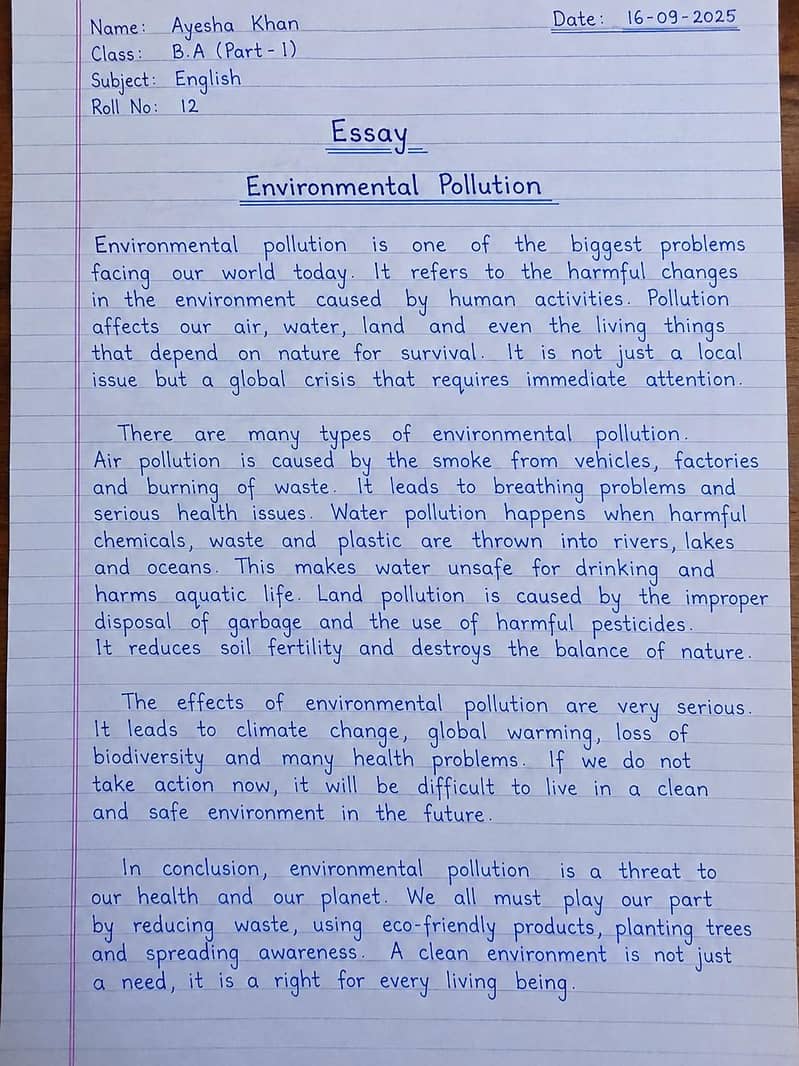 Name: Ayesha Khan
Date: 16-09-2025
Class: B.A (Part-1)
Subject: English
Roll No: 12
Essay
Environmental Pollution
Environmental pollution is one of the biggest problems
facing our world today. It refers to the harmful changes
in the environment caused by human activities. Pollution
affects our air, water, land and even the living things
that depend on nature for survival. It is not just a local
issue but a global crisis that requires immediate attention.
There are many types of environmental pollution.
Air pollution is caused by the smoke from vehicles, factories
and burning of waste. It leads to breathing problems and
serious health issues. Water pollution happens when harmful
chemicals, waste and plastic are thrown into rivers, lakes
and oceans. This makes water unsafe for drinking and
harms aquatic life. Land pollution is caused by the improper
disposal of garbage and the use of harmful pesticides.
It reduces soil fertility and destroys the balance of nature.
The effects of environmental pollution are very serious.
It leads to climate change, global warming, loss of
biodiversity and many health problems. If we do not
take action now, it will be difficult to live in a clean
and safe environment in the future.
In conclusion, environmental pollution is a threat to
our health and our planet. We all must play our part
by reducing waste, using eco-friendly products, planting trees
and spreading awareness. A clean environment is not just
a need, it is a right for every living being.